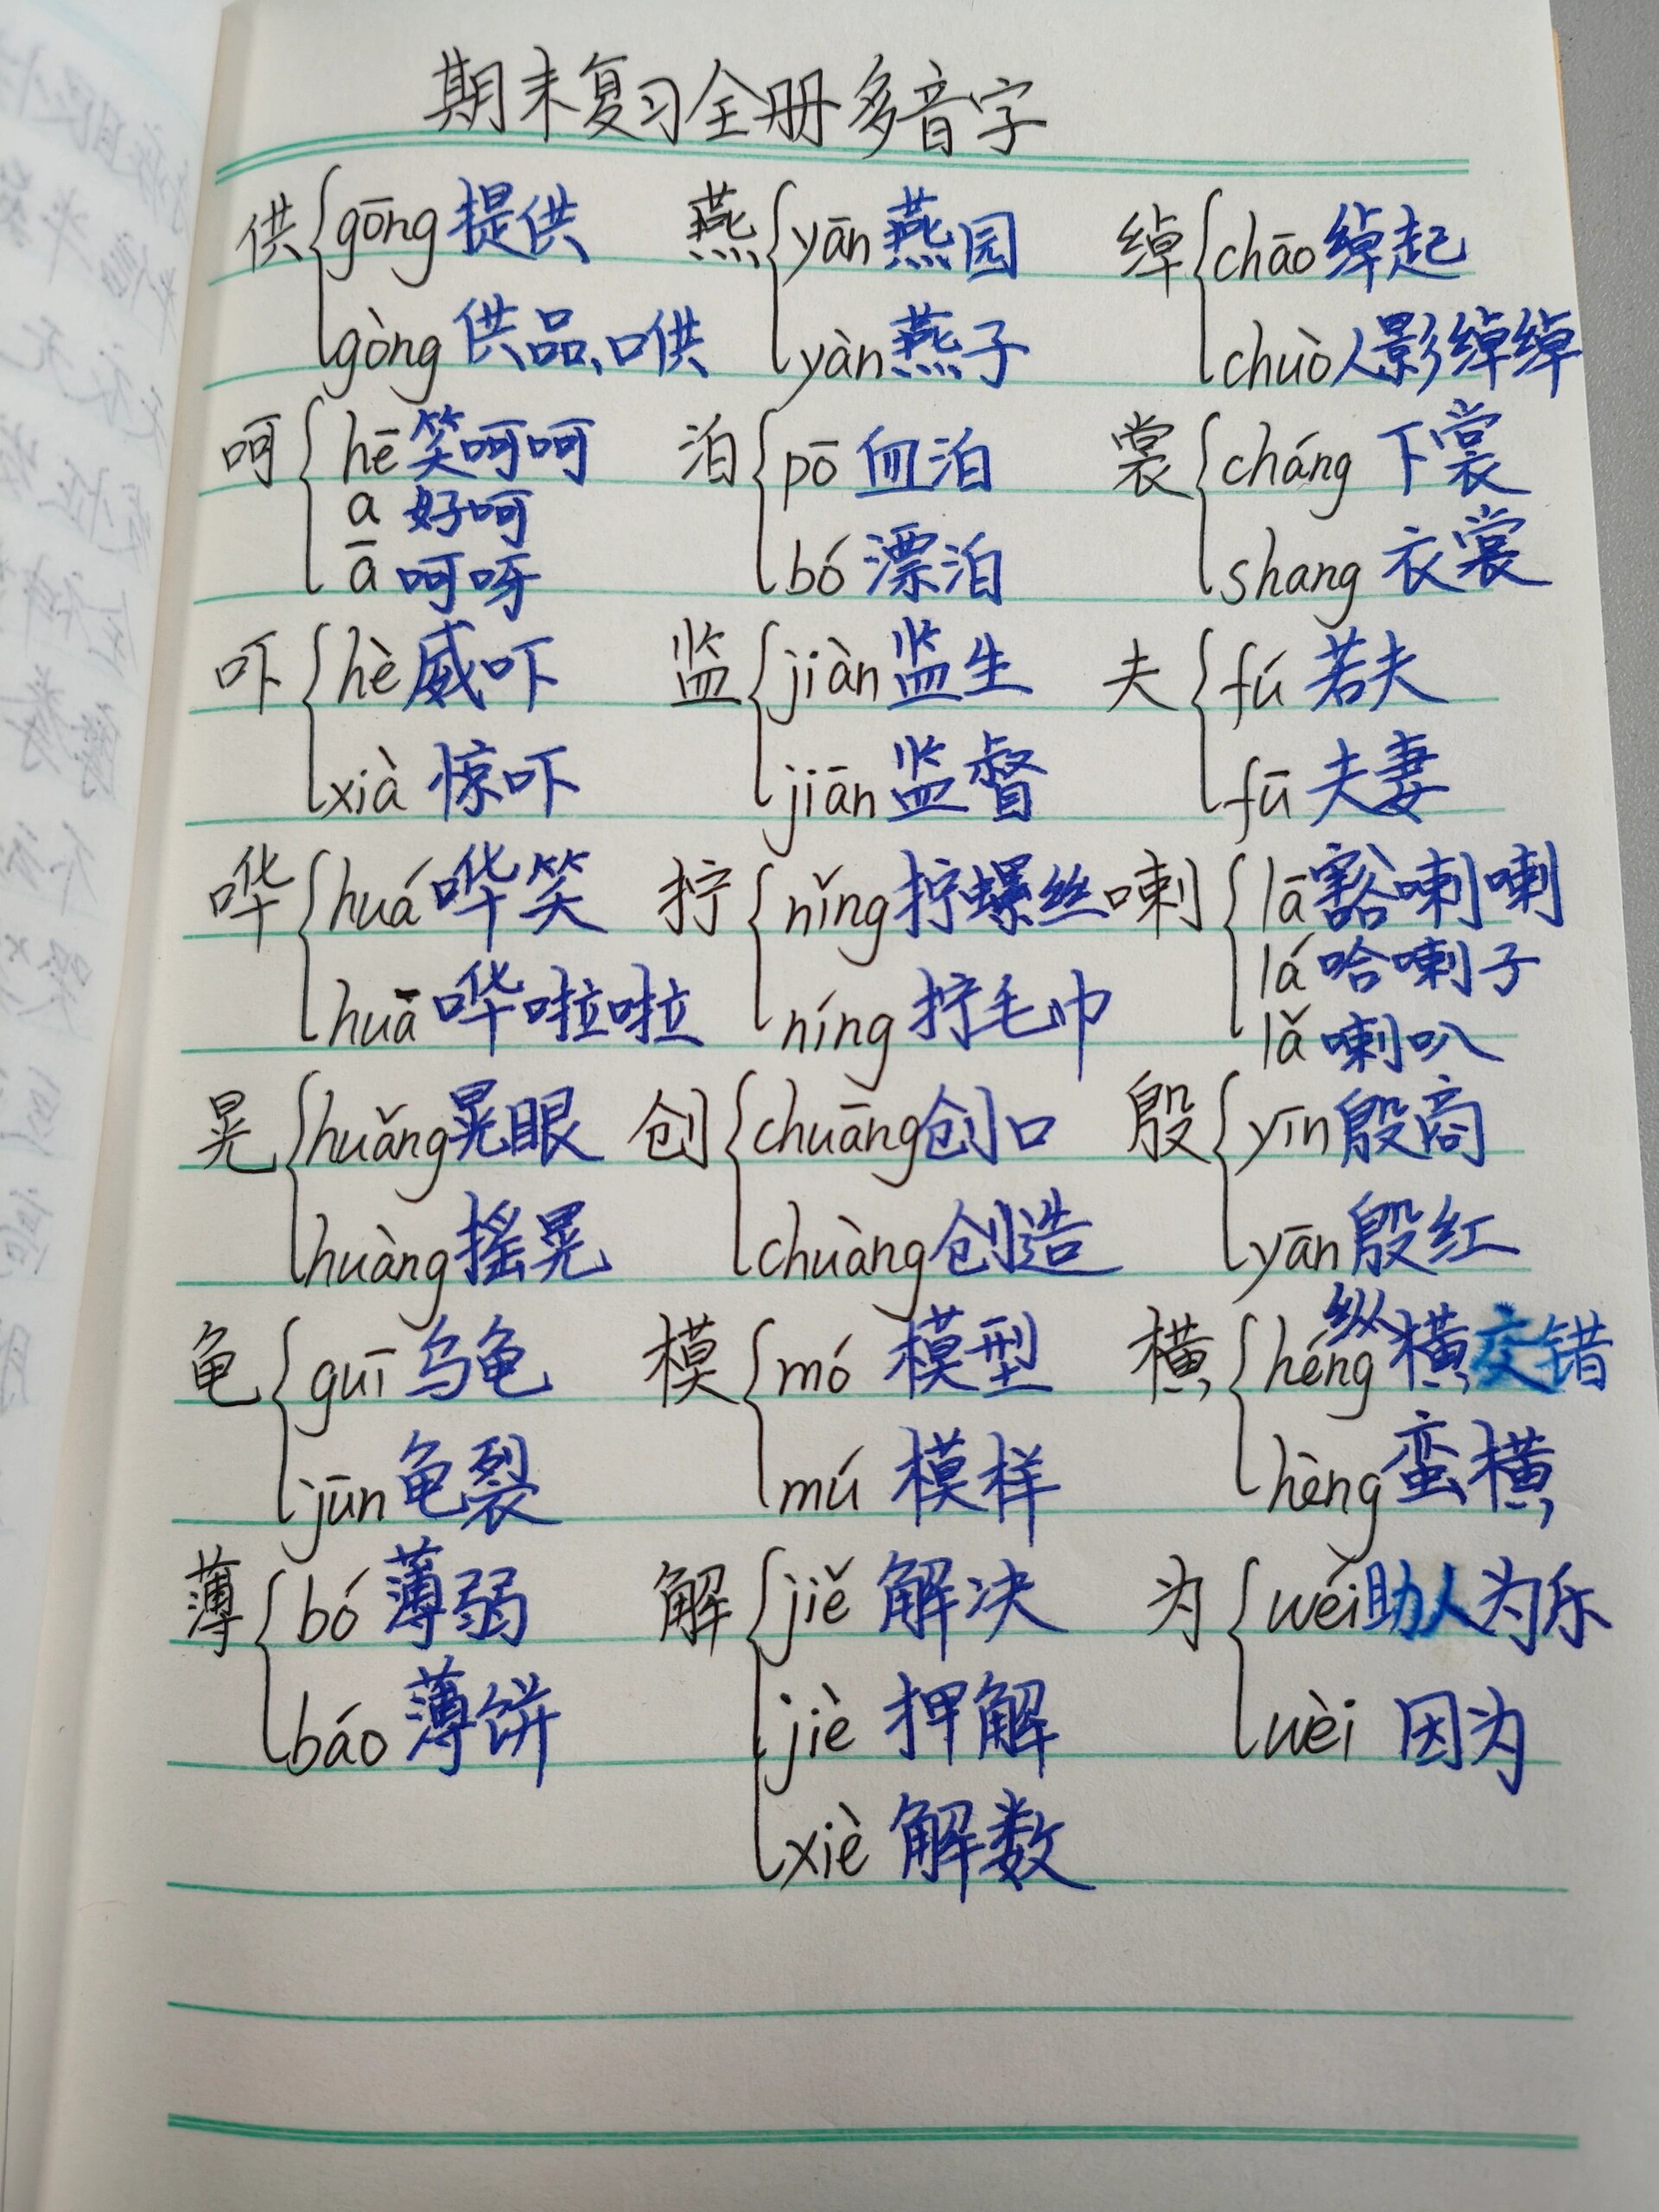 期末复习全册多音字
供 gōng 提供 燕 yān 燕园 绰 chāo 绰起
gòng 供品、口供 yàn 燕子 chuò 人影绰绰
呵 hē 笑呵呵 泊 pō 血泊 裳 cháng 下裳
a 好呵
ā 呵呀 bó 漂泊 shang 衣裳
吓 hè 威吓 监 jiàn 监生 夫 fú 若夫
xià 惊吓 jiān 监督 fū 夫妻
哗 huá 哗笑 拧 nǐng 拧螺丝 喇 lā 豁喇喇
lá 哈喇子
huā 哗啦啦 níng 拧毛巾 lǎ 喇叭
晃 huǎng 晃眼 创 chuāng 创口 殷 yīn 殷商
huàng 摇晃 chuàng 创造 yān 殷红
龟 guī 乌龟 模 mó 模型 横 héng 纵横交错
jūn 龟裂 mú 模样 hèng 蛮横
薄 bó 薄弱 解 jiě 解决 为 wéi 助人为乐
báo 薄饼 jiè 押解 wèi 因为
xiè 解数